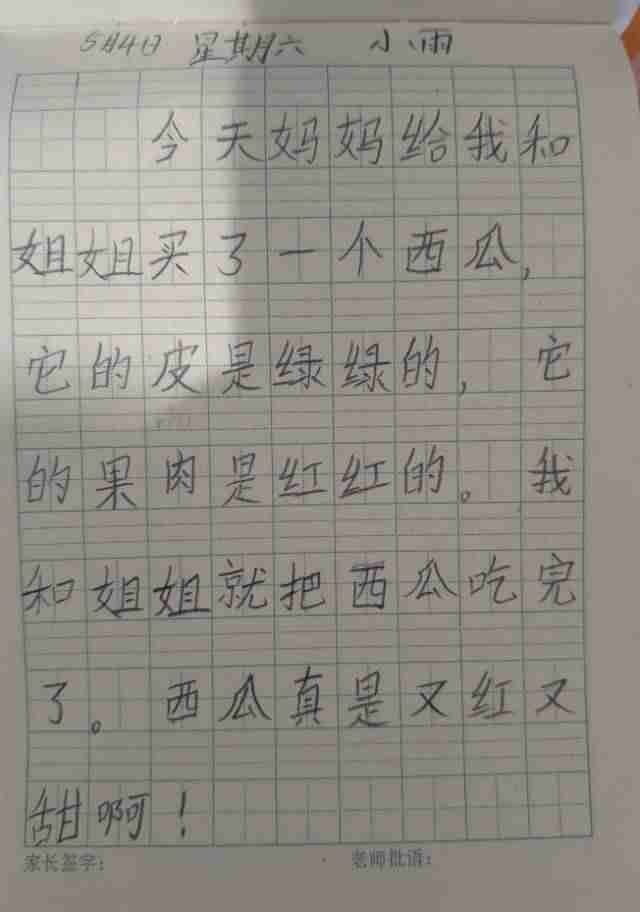 5月4日 星期六 小雨
今天妈妈给我和
姐姐买了一个西瓜,
它的皮是绿绿的,它
的果肉是红红的。我
和姐姐就把西瓜吃完
了。西瓜真是又红又
甜啊!
家长签字: 老师批语: